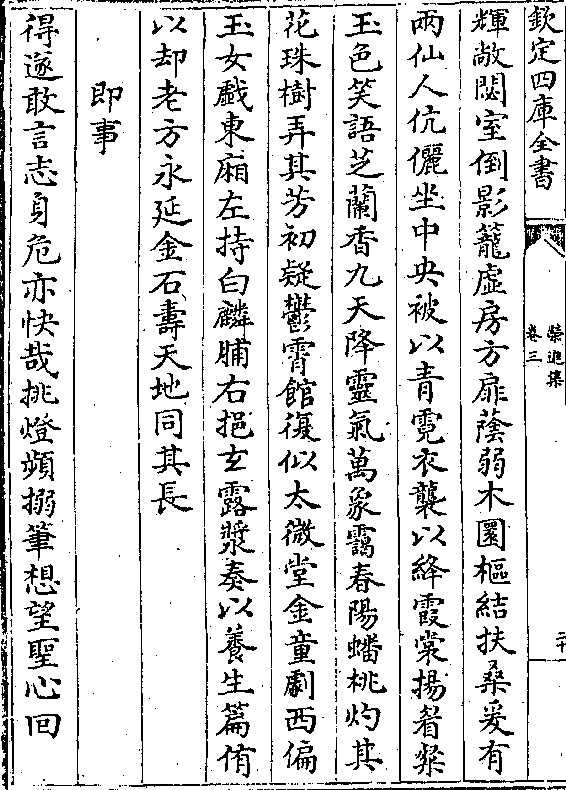 欽定四庫全書
榮進集
卷三
二十
輝敞閟室倒影籠虛房方扉蔭弱木圜樞結扶桑爰有
兩仙人伉儷坐中央被以青霓衣襲以絳霞裳揚䂥粲
玉色笑語芝蘭香九天降靈氣萬象靄春陽蟠桃灼其
花珠樹弄其芳初疑鬱霄館復似太微堂金童劇西偏
玉女戲東廂左持白麟脯右挹玄露漿奏以養生篇侑
以却老方永延金石壽天地同其長
即事
得遂敢言志身危亦快哉挑燈頻搦筆想望聖心回